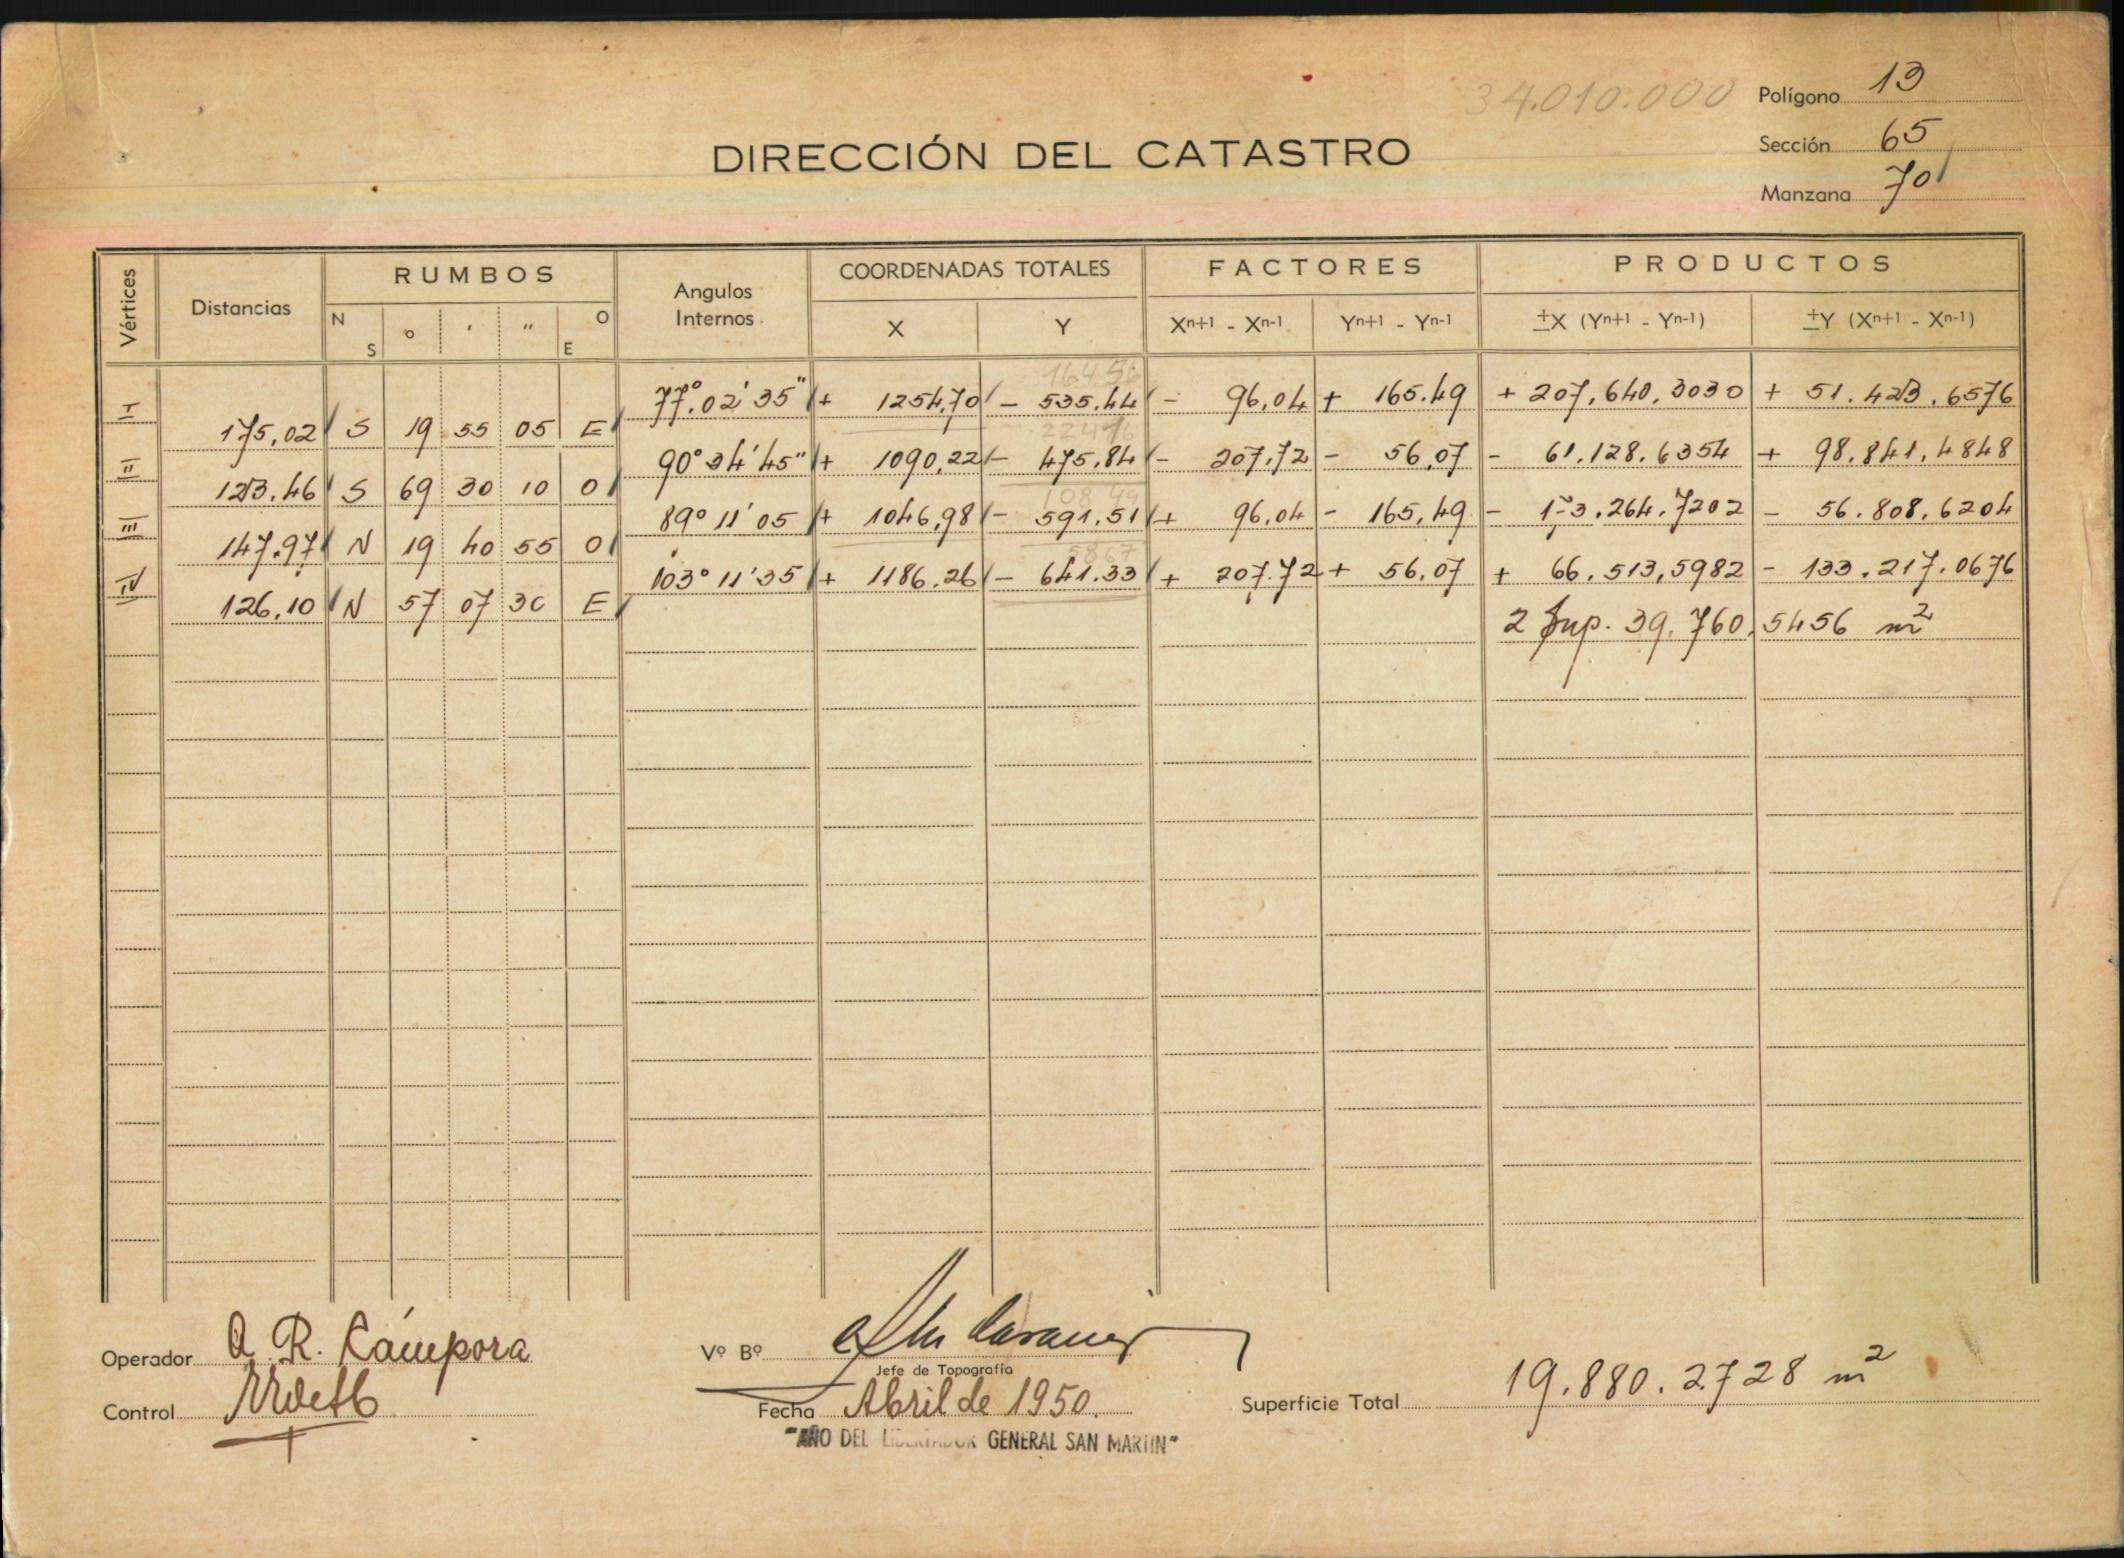 34.010.000
Polígono 13
Sección 65
Manzana 70
DIRECCIÓN DEL CATASTRO
Vértices Distancias RUMBOS Angulos Internos COORDENADAS TOTALES FACTORES PRODUCTOS
N S ° ' " O E X Y Xn+1 - Xn-1 Yn+1 - Yn-1 ±X (Yn+1 - Yn-1) ±Y (Xn+1 - Xn-1)
I 77° 02' 35" + 1254,70 - 535.44 - 96,04 + 165.49 + 207,640,3030 + 51.423.6576
175,02 S 19 55 05 E
II 90° 34' 45" + 1090,22 - 475,84 - 207,72 - 56,07 - 61.128.6354 + 98.841,4848
123.46 S 69 30 10 O
III 89° 11' 05 + 1046,98 - 591.51 + 96,04 - 165,49 - 173.264.7202 - 56.808,6204
147.97 N 19 40 55 O
IV 103° 11' 35 + 1186.26 - 641.33 + 207.72 + 56,07 + 66.513,5982 - 133.217.0676
126,10 N 57 07 30 E
2 Sup. 39.760,5456 m²
Operador A. R. Cámpora
Vº Bº
Jefe de Topografía
Control
Fecha Abril de 1950.
Superficie Total 19.880.2728 m²
"AÑO DEL LIBERTADOR GENERAL SAN MARTIN"